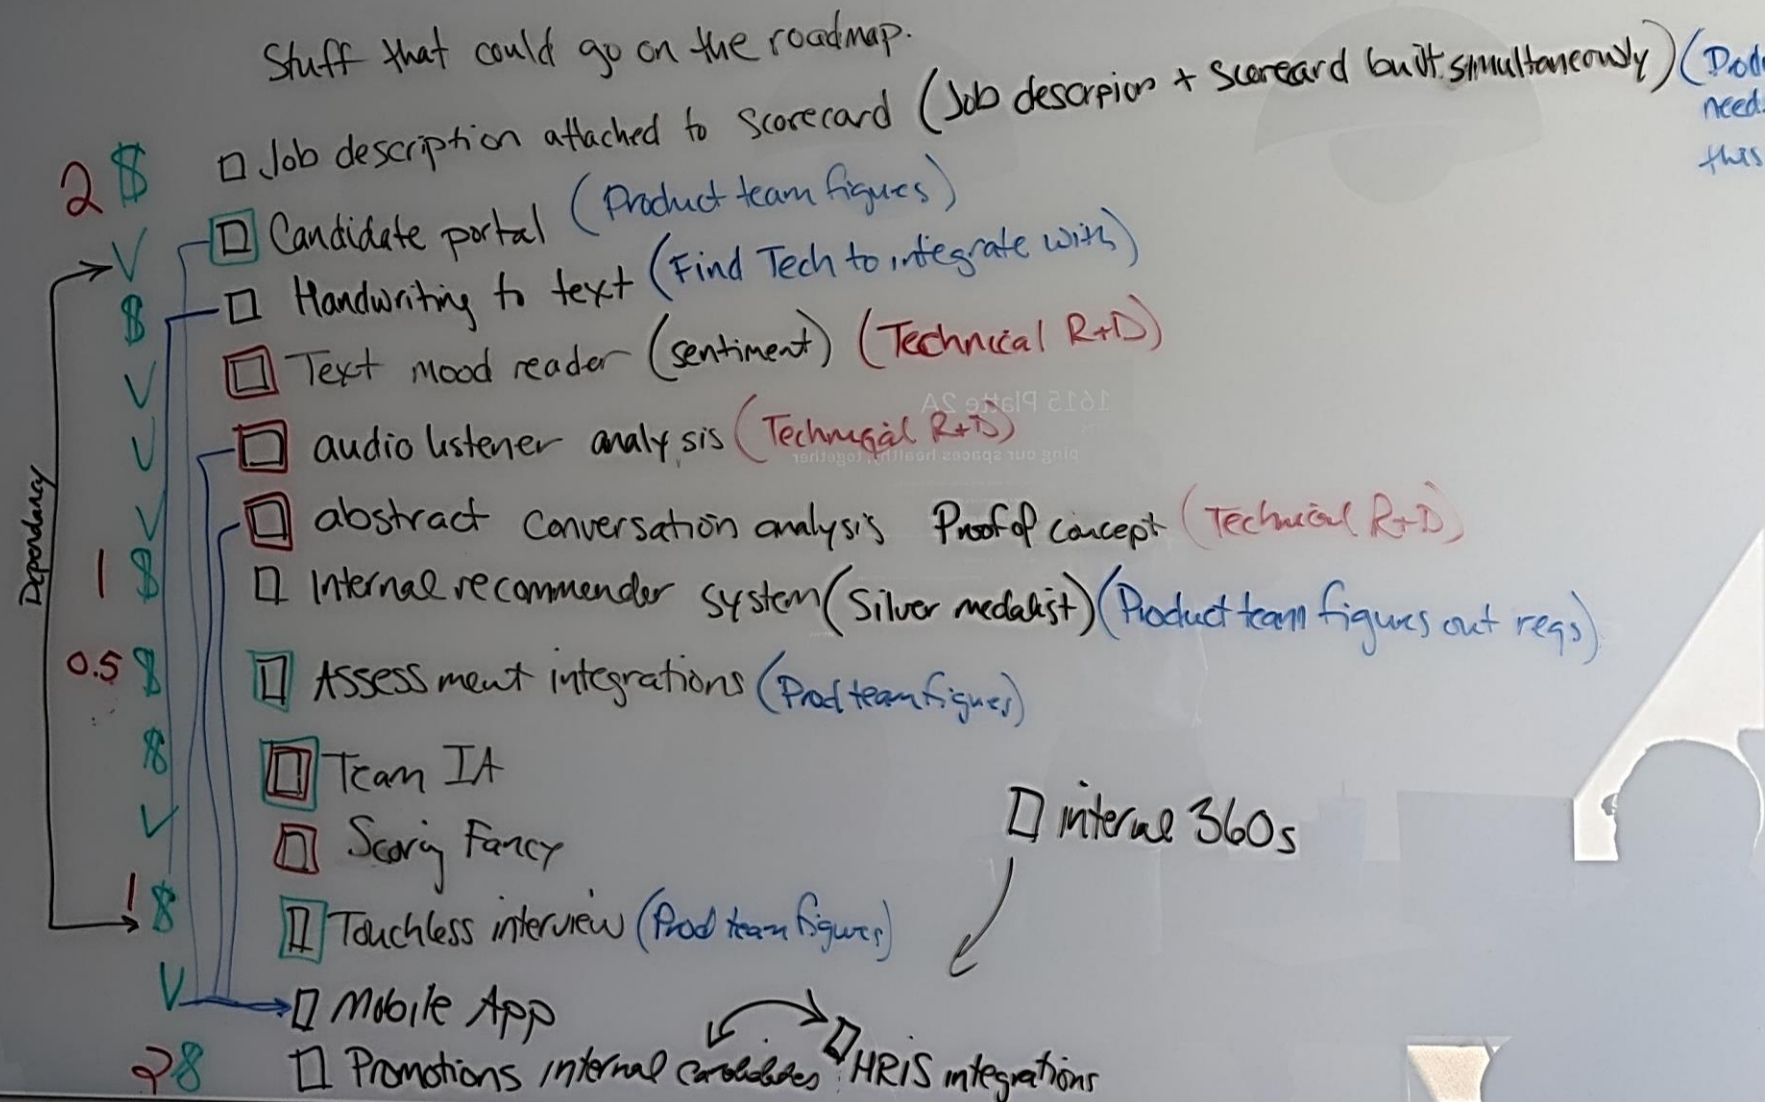 Stuff that could go on the roadmap.
2 $ Job description attached to Scorecard (Job descrpion + Scorecard built simultaneously) (Prod
need
this
V Candidate portal (Product team figures)
$ Handwriting to text (Find Tech to integrate with)
V Text mood reader (sentiment) (Technical R+D)
V audio listener analysis (Technical R+D)
V abstract conversation analysis Proof of concept (Technical R+D)
1 $ Internal recommender system (Silver medalist) (Product team figures out reqs)
0.5 $ Assessment integrations (Prod team figures)
$ Team IA
V Scorig Fancy
1 $ Touchless interview (Prod team figures)
V Mobile App
2 $ Promotions internal candidates HRIS integrations
internal 360s
Dependancy
1615 Platte 2A
ping our spaces healthy, together